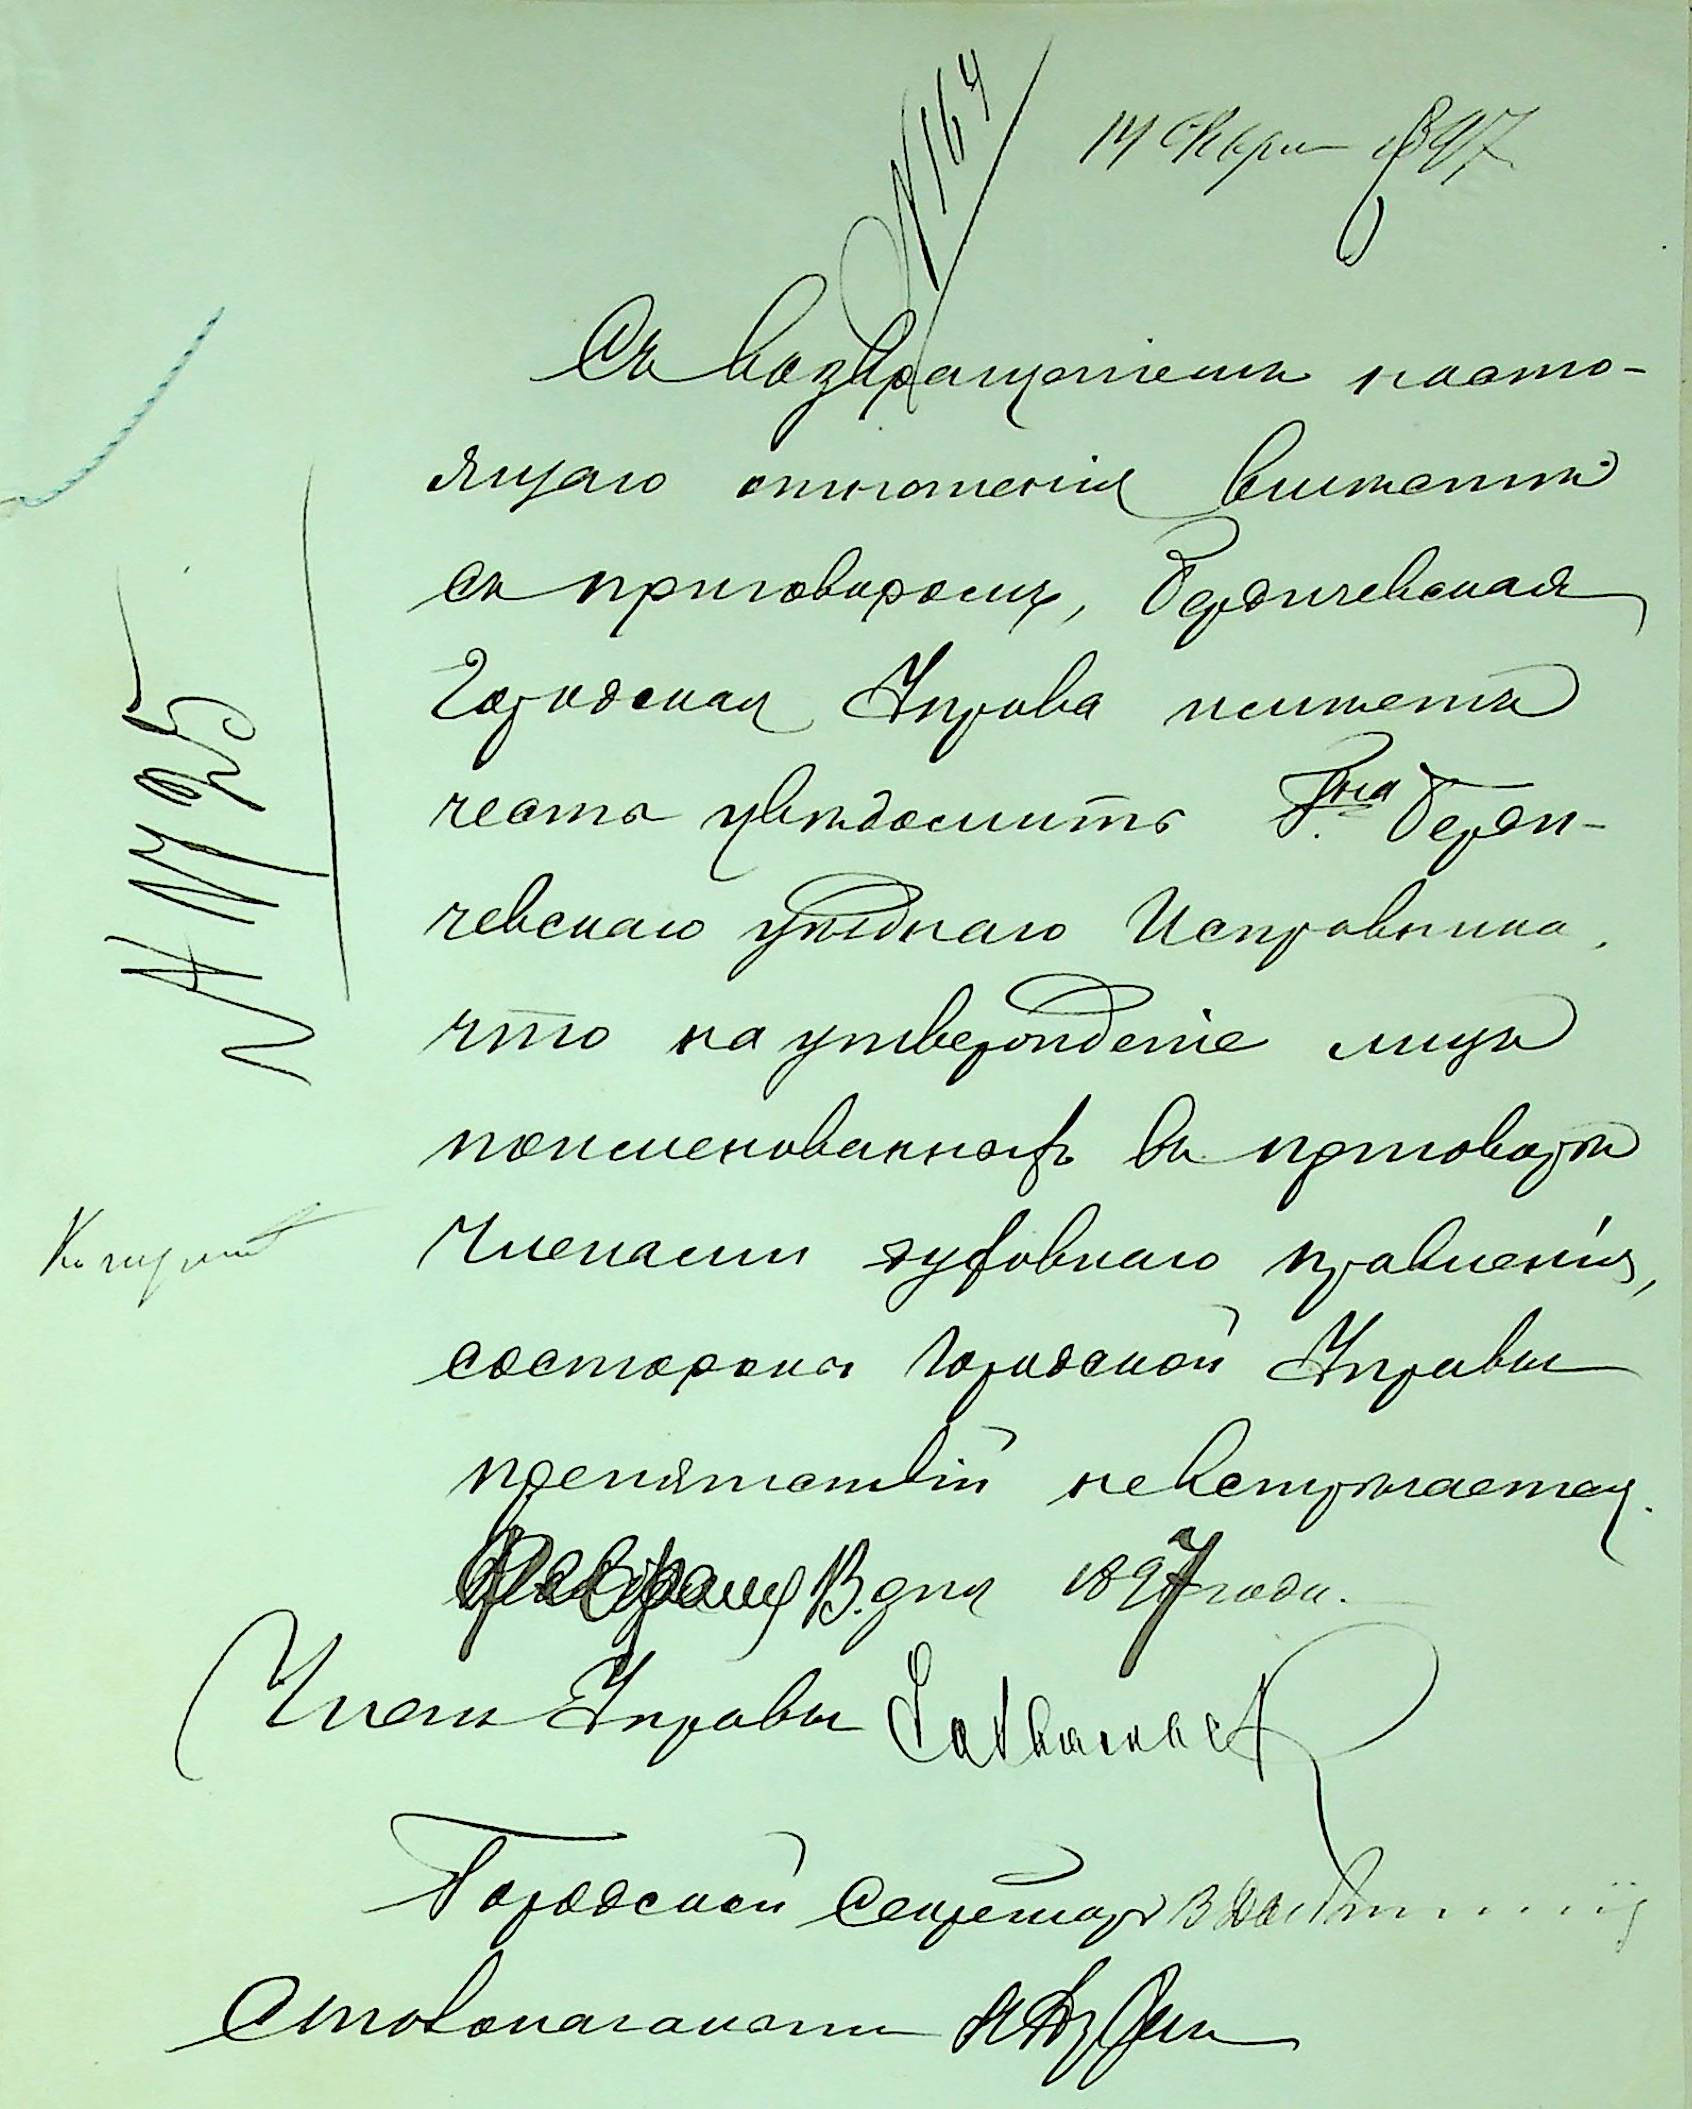 № 164
14 Февр 1897
Съ возвращеніемъ насто-
ящаго отношенія вмѣстѣ
съ приговоромъ, Бердичевская
Городская Управа имѣетъ
честь увѣдомить Г.на Берди-
чевскаго уѣзднаго Исправника,
что на утвержденіе лицъ
поименованныхъ въ приговорѣ
Членами духовнаго правленія,
состороны Городской Управы
препятствій невстрѣчается.
Февраля 13 дня 1897 года.
Членъ Управы
Городской Секретарь
Столоначальникъ
№ 725